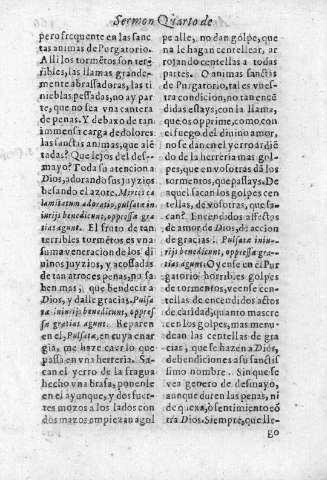 Sermon Quarto de
pero frequente en las sanc
tas animas de Purgatorio.
Alli los tormẽtos son ter-
ribles, las llamas grande-
mente abrassadoras, las ti
nieblas pessadas, no ay par
te, que no sea vna cantera
de penas. Y debaxo de tan
immensa carga de dolores
las sanctas animas, que alẽ
tadas? Que lejos del des-
mayo? Toda su atencion a
Dios, adorando sus juyzios
besando el azote.
adoratio, pulsatæ in
iurijs benedicunt, oppressæ gra
tias agunt. El fruto de tan
terribles tormẽtos es vna
suma veneracion de los di
uinos juyzios, y acossadas
de tan atroces penas, no sa
ben mas, que bendecir a
Dios, y dalle gracias. Pulsa-
tæ iniurijs benedicunt, oppres-
sæ gratias agunt. Reparen
en el, Pulsatæ, en cuya ener
gia, me haze caer lo que
passa en vna herreria. Sa-
can el yerro de la fragua
hecho vna brasa, ponenle
en el ayunque, y dos fuer-
tes mozos a los lados con
dos mazos empiezan a gol
pealle, no dan golpe, que
no le hagan centellear, ar
rojando centellas a todas
partes. O animas sanctas
de Purgatorio, tal es vues-
tra condicion, no tan encẽ
didas essays, con la llama,
que os opprime, como, con
el fuego del diuino amor,
no se dan en el yerro ardiẽ
do de la herreria mas gol-
pes, que en vosotras dã los
tormentos, que passays. De
aquel sacan los golpes cen
tellas, de vosotras, que sa-
can? Encendidos affectos
de amor de Dios, de accion
de gracias. Pulsatæ iniu-
rijs benedicunt, oppressæ gra-
tias agunt. Oyense en el Pur
gatorio horribles golpes
de tormentos, veense cen-
tellas de encendidos actos
de caridad, quanto mas cre
cen los golpes, mas menu-
dean las centellas de gra-
cias, que se hazen a Dios,
de bendiciones a su sanctis
simo nombre. Sin que se
vea genero de desmayo,
aunque duren las penas, ni
de quexa, ò sentimiento cõ
tra Dios. Siempre, que lle-
go